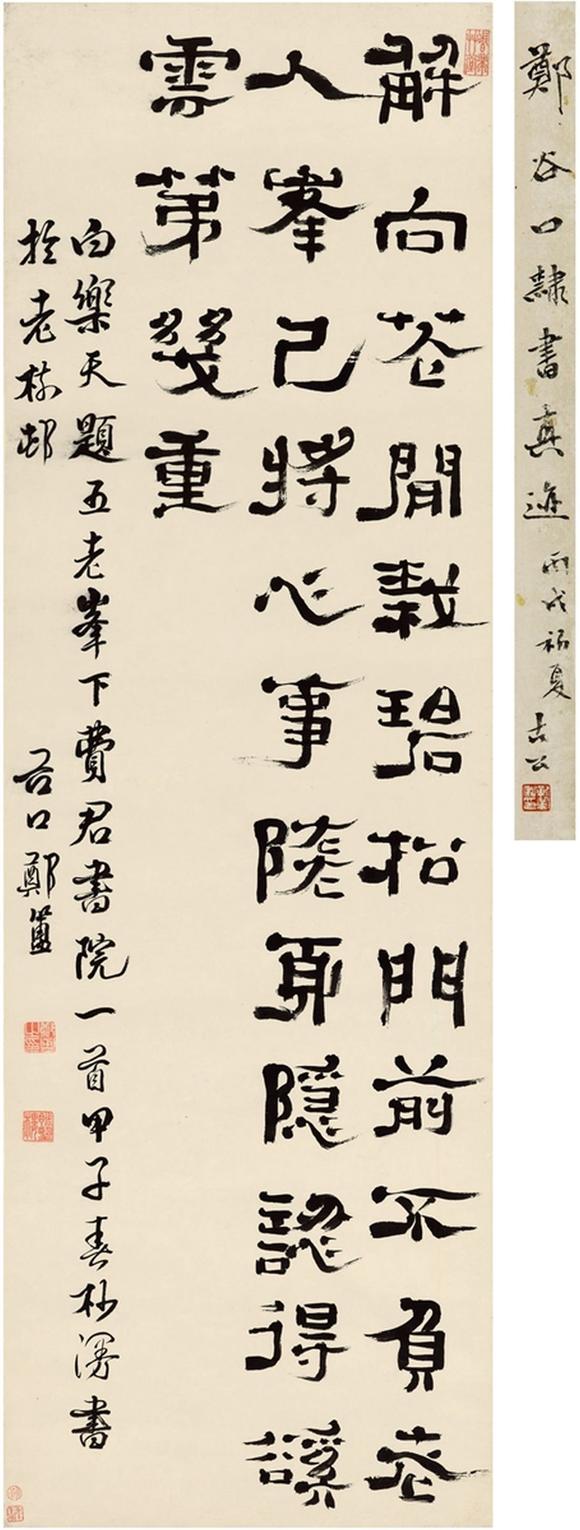 鄭谷口隸書真迹 丙戌初夏 吉公
解向花間栽碧松門前不負老
人峯已將心事隨身隱認得溪
雲第幾重
白樂天題五老峯下費君書院一首甲子春杪漫書
於老梅邨 谷口鄭簠